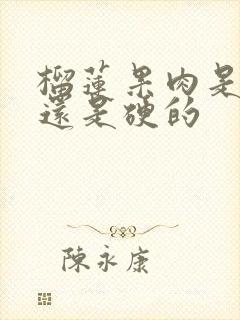 榴蓮果肉是
還是硬的
陳永康